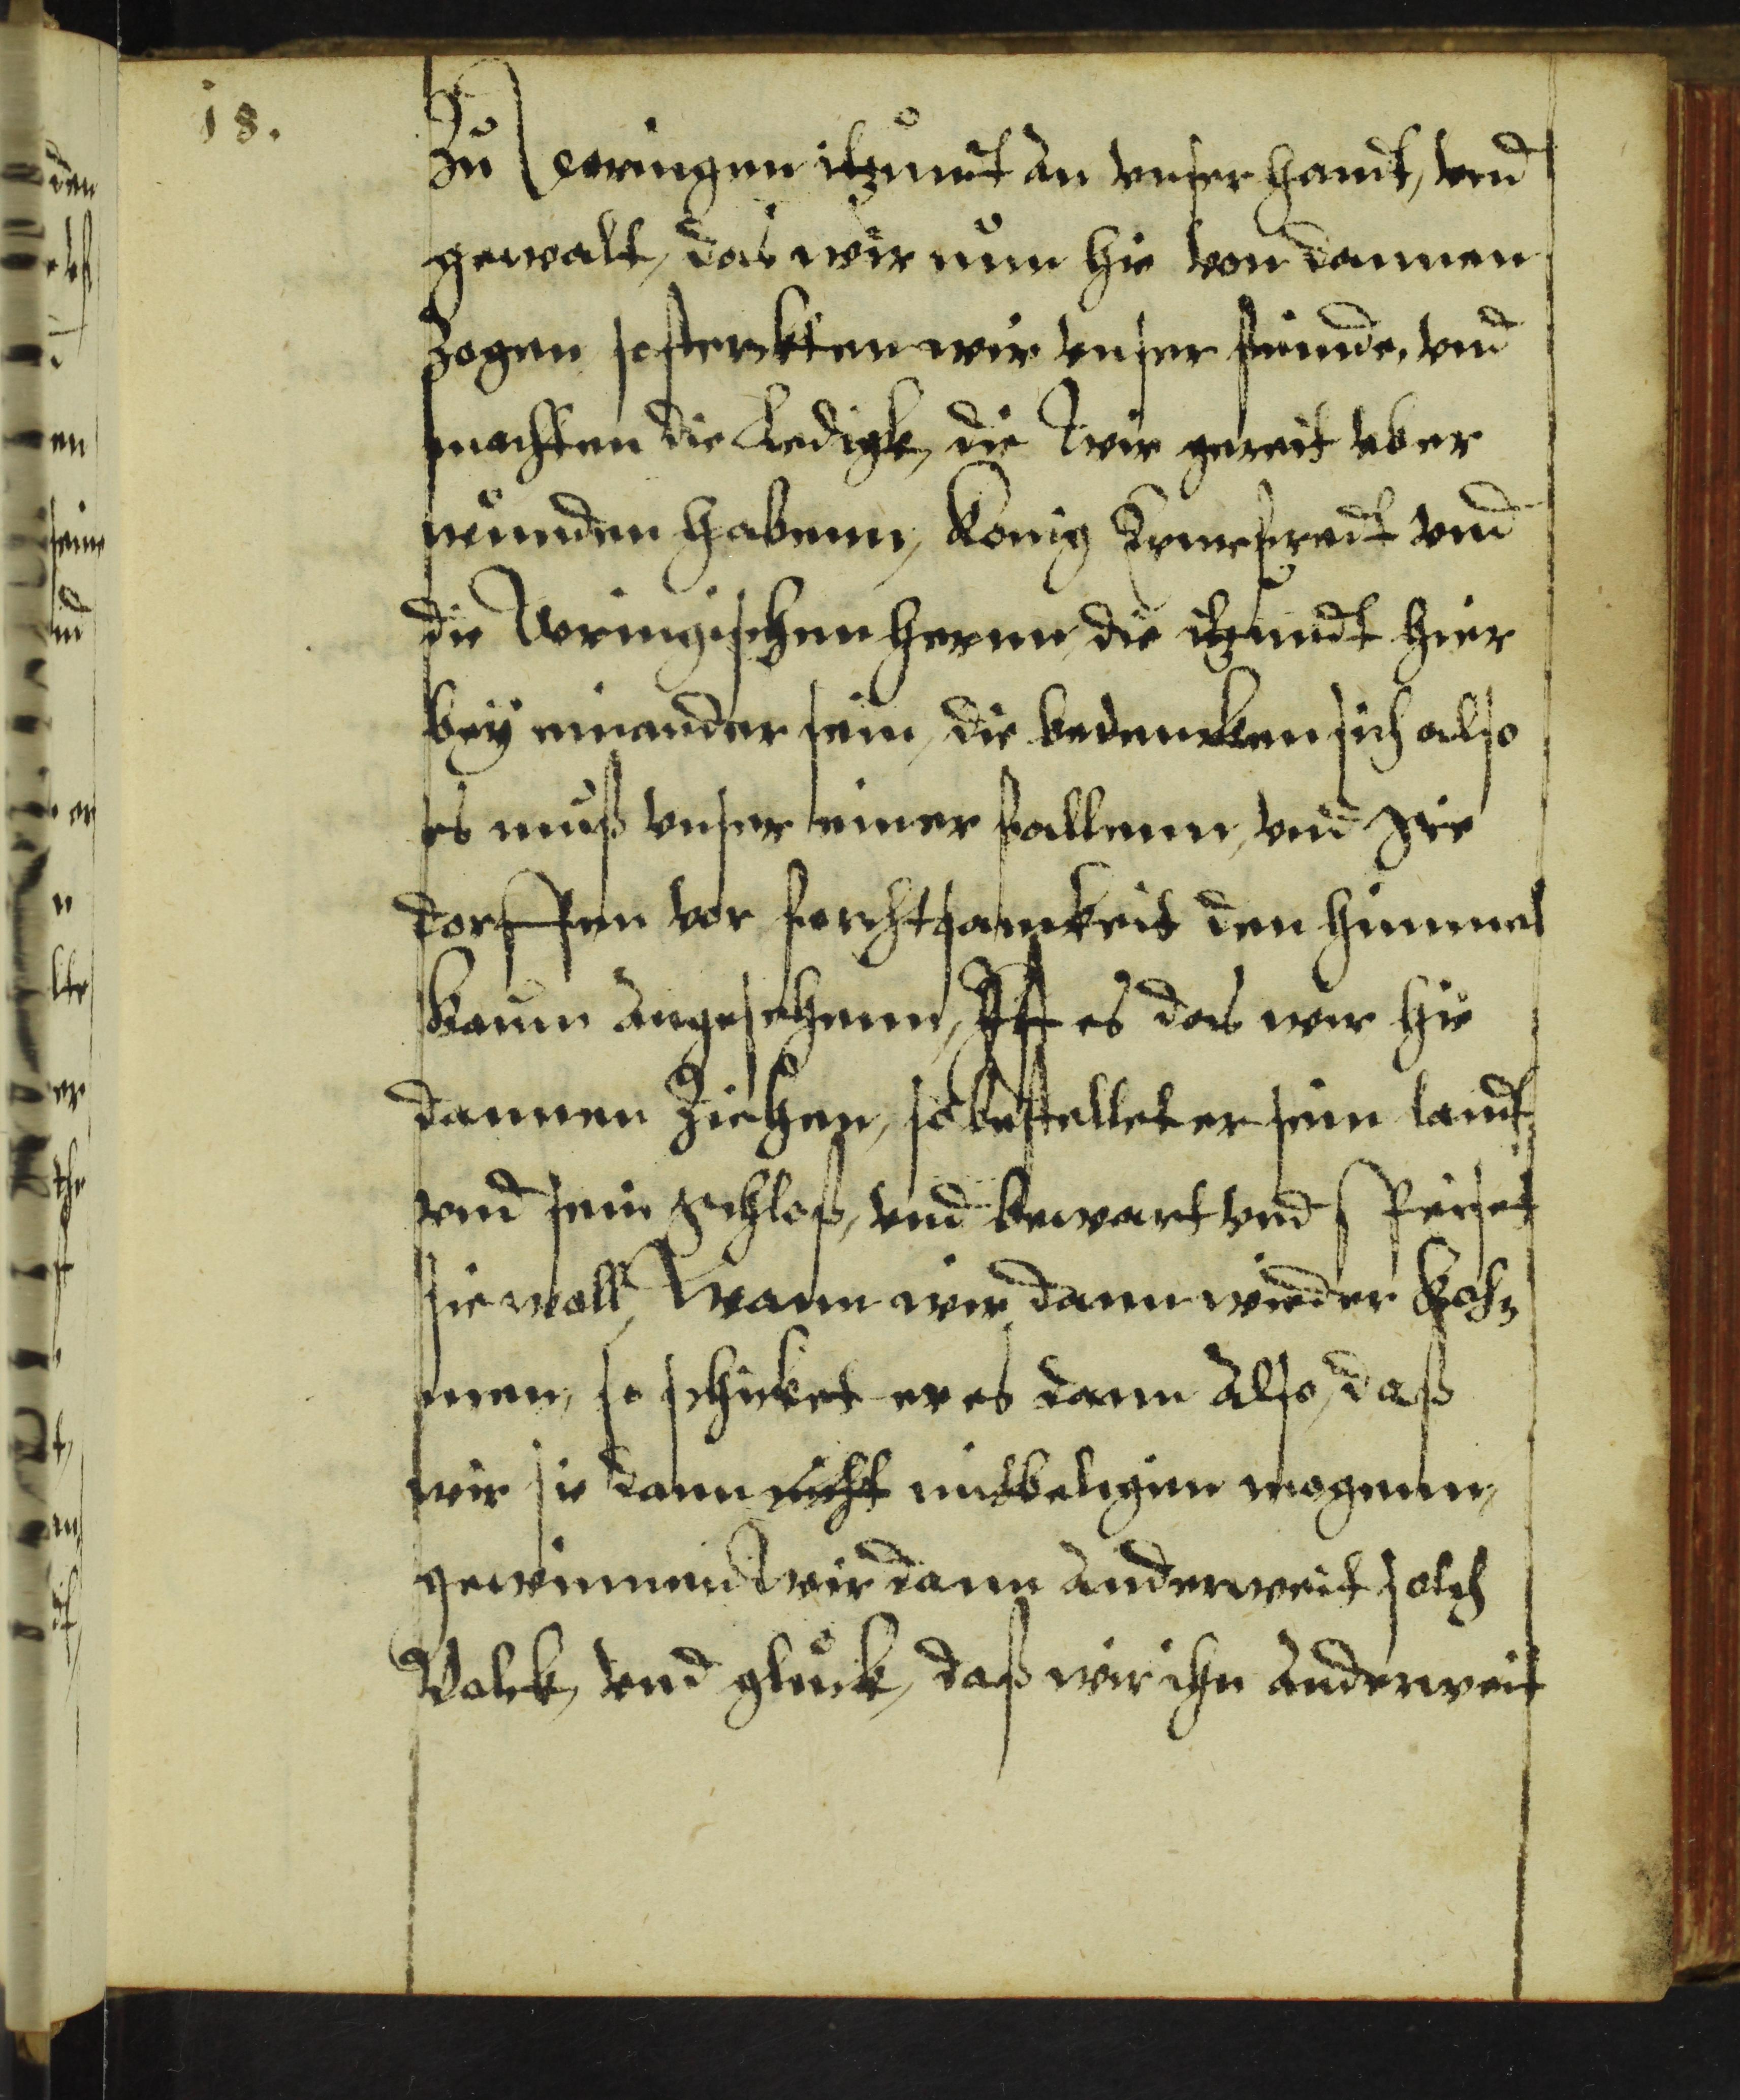 18.
Zu Doringen itzundt an vnser handt, vnd
gewalt, das wir nun hie von dannen
Zogen so sterckten wir vnser feinde, vnd
machten die Ledigk, die wir gereit vber
wunden habenn, Konig Ermefredt vnd
die Doringischen herrn, die itzundt hier
bey einander sein, die bedencken sich also
es muß vnser einer fallenn, vnd sie
dorffen vor forchtsamkeit den himmel
kaum angesehenn, Ist es das wir hie
dannen Ziehen, so bestellet er sein landt
vnd sein Schloß, vnd bewart vnd speiset
sie woll, wann wir dann wieder koh=
men, so schicket er es dann also, daß
wir sie dann nicht mit beligen mogenn,
gewinnen wir dann anderweit solch
Volck, vnd gluck, daß wir ihn anderweit